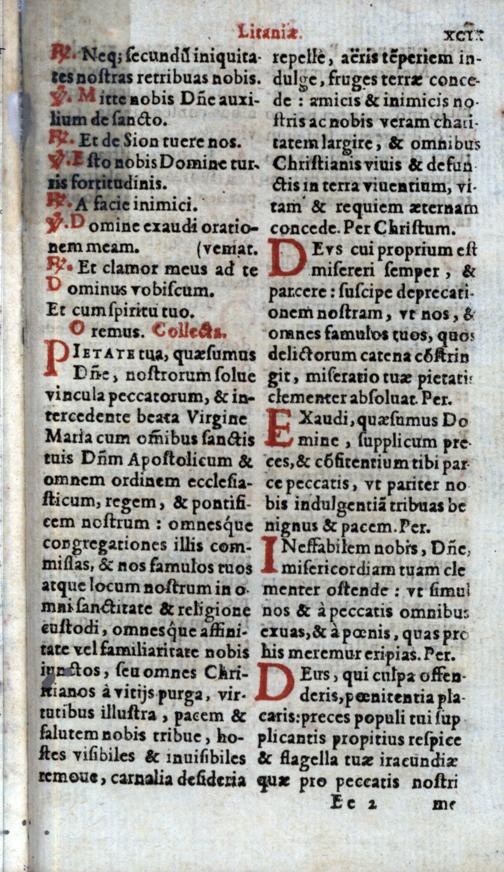 Litaniæ. XCIX
℟. Neq; secundũ iniquita-
tes nostras retribuas nobis.
℣. Mitte nobis Dñe auxi-
lium de sancto.
℟. Et de Sion tuere nos.
℣. Esto nobis Domine tur-
ris fortitudinis.
℟. A facie inimici.
℣. Domine exaudi oratio-
nem meam. (veniat.
℟. Et clamor meus ad te
Dominus vobiscum.
Et cum spiritu tuo.
Oremus. Collecta.
PIETATE tua, quæsumus
Dñe, nostrorum solue
vincula peccatorum, & in-
tercedente beata Virgine
Maria cum om̃ibus sanctis
tuis Dñm Apostolicum &
omnem ordinem ecclesia-
sticum, regem, & pontifi-
cem nostrum : omnesq́ue
congregationes illis com-
missas, & nos famulos tuos
atque locum nostrum in o-
mni sanctitate & religione
custodi, omnesq́ue affini-
tate vel familiaritate nobis
iunctos, seu omnes Chri-
stianos à vitijs purga, vir-
tutibus illustra, pacem &
salutem nobis tribue, ho-
stes visibiles & inuisibiles
remoue, carnalia desideria
repelle, aëris tẽperiem in-
dulge, fruges terræ conce-
de : amicis & inimicis no-
stris ac nobis veram chari-
tatem largire, & omnibus
Christianis viuis & defun-
ctis in terra viuentium, vi-
tam & requiem æternam
concede. Per Christum.
DEVS cui proprium est
misereri semper, &
parcere : suscipe deprecati-
onem nostram, vt nos, &
omnes famulos tuos, quos
delictorum catena cõstrin
git, miseratio tuæ pietatis
clementer absoluat. Per.
EXaudi, quæsumus Do
mine, supplicum pre-
ces, & cõfitentium tibi par
ce peccatis, vt pariter no
bis indulgentiã tribuas be
nignus & pacem. Per.
INeffabilem nobis, Dñe,
misericordiam tuam cle
menter ostende : vt simul
nos & à peccatis omnibus
exuas, & à pœnis, quas pro
his meremur eripias. Per.
DEus, qui culpa offen-
deris, pœnitentia pla-
caris: preces populi tui sup
plicantis propitius respice
& flagella tuæ iracundiæ
quæ pro peccatis nostri
Ee 2 me